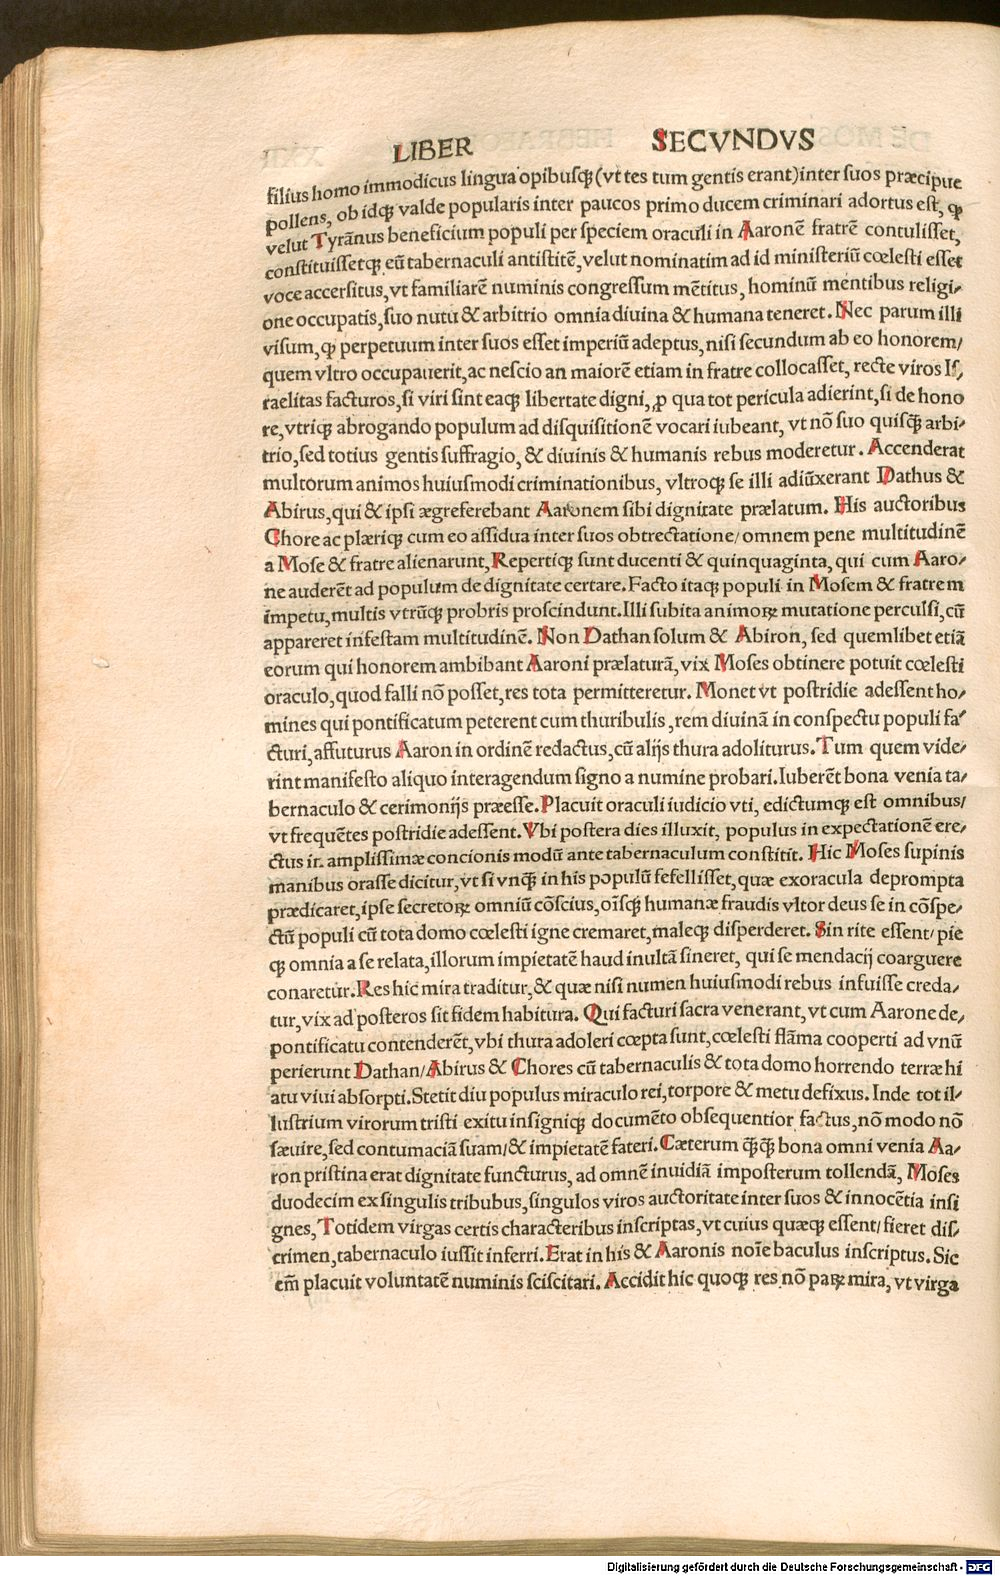 LIBER SECVNDVS
filius homo immodicus lingua opibusqꝫ (vt tes tum gentis erant) inter suos præcipue
pollens, ob idqꝫ valde popularis inter paucos primo ducem criminari adortus est, ꝙ
velut Tyrãnus beneficium populi per speciem oraculi in Aaronē fratrē contulisset,
constituissetqꝫ eũ tabernaculi antistitē, velut nominatim ad id ministeriũ cœlesti esset
voce accersitus, vt familiarē numinis congressum mētitus, hominũ mentibus religi⸗
one occupatis, suo nutu & arbitrio omnia diuina & humana teneret. Nec parum illi
visum, ꝙ perpetuum inter suos esset imperiũ adeptus, nisi secundum ab eo honorem/
quem vltro occupauerit, ac nescio an maiorē etiam in fratre collocasset, recte viros Is⸗
raelitas facturos, si viri sint eaqꝫ libertate digni, ꝓ qua tot pericula adierint, si de hono
re, vtriqꝫ abrogando populum ad disquisitionē vocari iubeant, vt nõ suo quisqꝫ̃ arbi⸗
trio, sed totius gentis suffragio, & diuinis & humanis rebus moderetur. Accenderat
multorum animos huiusmodi criminationibus, vltroqꝫ se illi adiũxerant Dathus &
Abirus, qui & ipsi ægreferebant Aaronem sibi dignitate prælatum. His auctoribus
Chore ac plæriqꝫ cum eo assidua inter suos obtrectatione/ omnem pene multitudinē
a Mose & fratre alienarunt, Repertiqꝫ sunt ducenti & quinquaginta, qui cum Aaro⸗
ne auderēt ad populum de dignitate certare. Facto itaqꝫ populi in Mosem & fratrem
impetu, multis vtrũqꝫ probris proscindunt. Illi subita animoꝝ mutatione perculsi, cũ
appareret infestam multitudinē. Non Dathan solum & Abiron, sed quemlibet etiã
eorum qui honorem ambibant Aaroni prælaturã, vix Moses obtinere potuit cœlesti
oraculo, quod falli nõ posset, res tota permitteretur. Monet vt postridie adessent ho⸗
mines qui pontificatum peterent cum thuribulis, rem diuinã in conspectu populi fa⸗
cturi, affuturus Aaron in ordinē redactus, cũ alijs thura adoliturus. Tum quem vide⸗
rint manifesto aliquo interagendum signo a numine probari. Iuberēt bona venia ta⸗
bernaculo & cerimonijs præesse. Placuit oraculi iudicio vti, edictumqꝫ est omnibus/
vt frequētes postridie adessent. Vbi postera dies illuxit, populus in expectationē ere⸗
ctus in amplissimæ concionis modũ ante tabernaculum constitit. Hic Moses supinis
manibus orasse dicitur, vt si vnqꝫ̃ in his populũ fefellisset, quæ exoracula deprompta
prædicaret, ipse secretoꝝ omniũ cõscius, oĩsqꝫ humanæ fraudis vltor deus se in cõspe⸗
ctũ populi cũ tota domo cœlesti igne cremaret, maleqꝫ disperderet. Sin rite essent/ pie
qꝫ omnia a se relata, illorum impietatē haud inultã sineret, qui se mendacij coarguere
conaretur. Res hic mira traditur, & quæ nisi numen huiusmodi rebus infuisse creda⸗
tur, vix ad posteros sit fidem habitura. Qui facturi sacra venerant, vt cum Aarone de⸗
pontificatu contenderēt, vbi thura adoleri cœpta sunt, cœlesti flãma cooperti ad vnũ
perierunt Dathan/ Abirus & Chores cũ tabernaculis & tota domo horrendo terræ hi
atu viui absorpti. Stetit diu populus miraculo rei, torpore & metu defixus. Inde tot il⸗
lustrium virorum tristi exitu insigniqꝫ documēto obsequentior factus, nõ modo nõ
sæuire, sed contumaciã suam/ & impietatē fateri. Cæterum qꝫ̃qꝫ̃ bona omni venia Aa⸗
ron pristina erat dignitate functurus, ad omnē inuidiã imposterum tollendã, Moses
duodecim ex singulis tribubus, singulos viros auctoritate inter suos & innocētia insi
gnes, Totidem virgas certis characteribus inscriptas, vt cuius quæqꝫ essent/ fieret dis⸗
crimen, tabernaculo iussit inferri. Erat in his & Aaronis noĩe baculus inscriptus. Sic
em̃ placuit voluntatē numinis sciscitari. Accidit hic quoqꝫ res nõ paꝝ mira, vt virga
Digitalisierung gefördert durch die Deutsche Forschungsgemeinschaft - DFG